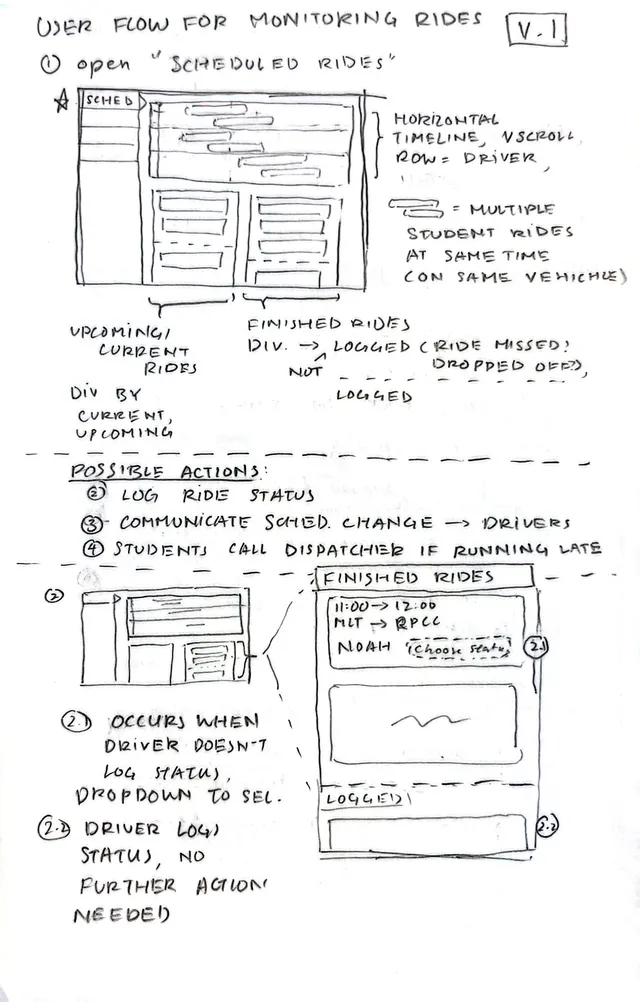 USER FLOW FOR MONITORING RIDES
V.1
① open "SCHEDULED RIDES"
SCHED
HORIZONTAL
TIMELINE, VSCROLL,
ROW = DRIVER,
= MULTIPLE
STUDENT RIDES
AT SAME TIME
(ON SAME VEHICHLE)
UPCOMING/
CURRENT
RIDES
DIV BY
CURRENT,
UPCOMING
FINISHED RIDES
DIV. → LOGGED (RIDE MISSED?
NOT
DROPPED OFF?),
LOGGED
POSSIBLE ACTIONS:
② LOG RIDE STATUS
③ COMMUNICATE SCHED. CHANGE → DRIVERS
④ STUDENTS CALL DISPATCHER IF RUNNING LATE
②
FINISHED RIDES
11:00 → 12:00
MLT → RPCC
NOAH (choose status)
2.1
LOGGED
2.2
2.1 OCCURS WHEN
DRIVER DOESN'T
LOG STATUS,
DROPDOWN TO SEL.
2.2 DRIVER LOGS
STATUS, NO
FURTHER ACTION
NEEDED